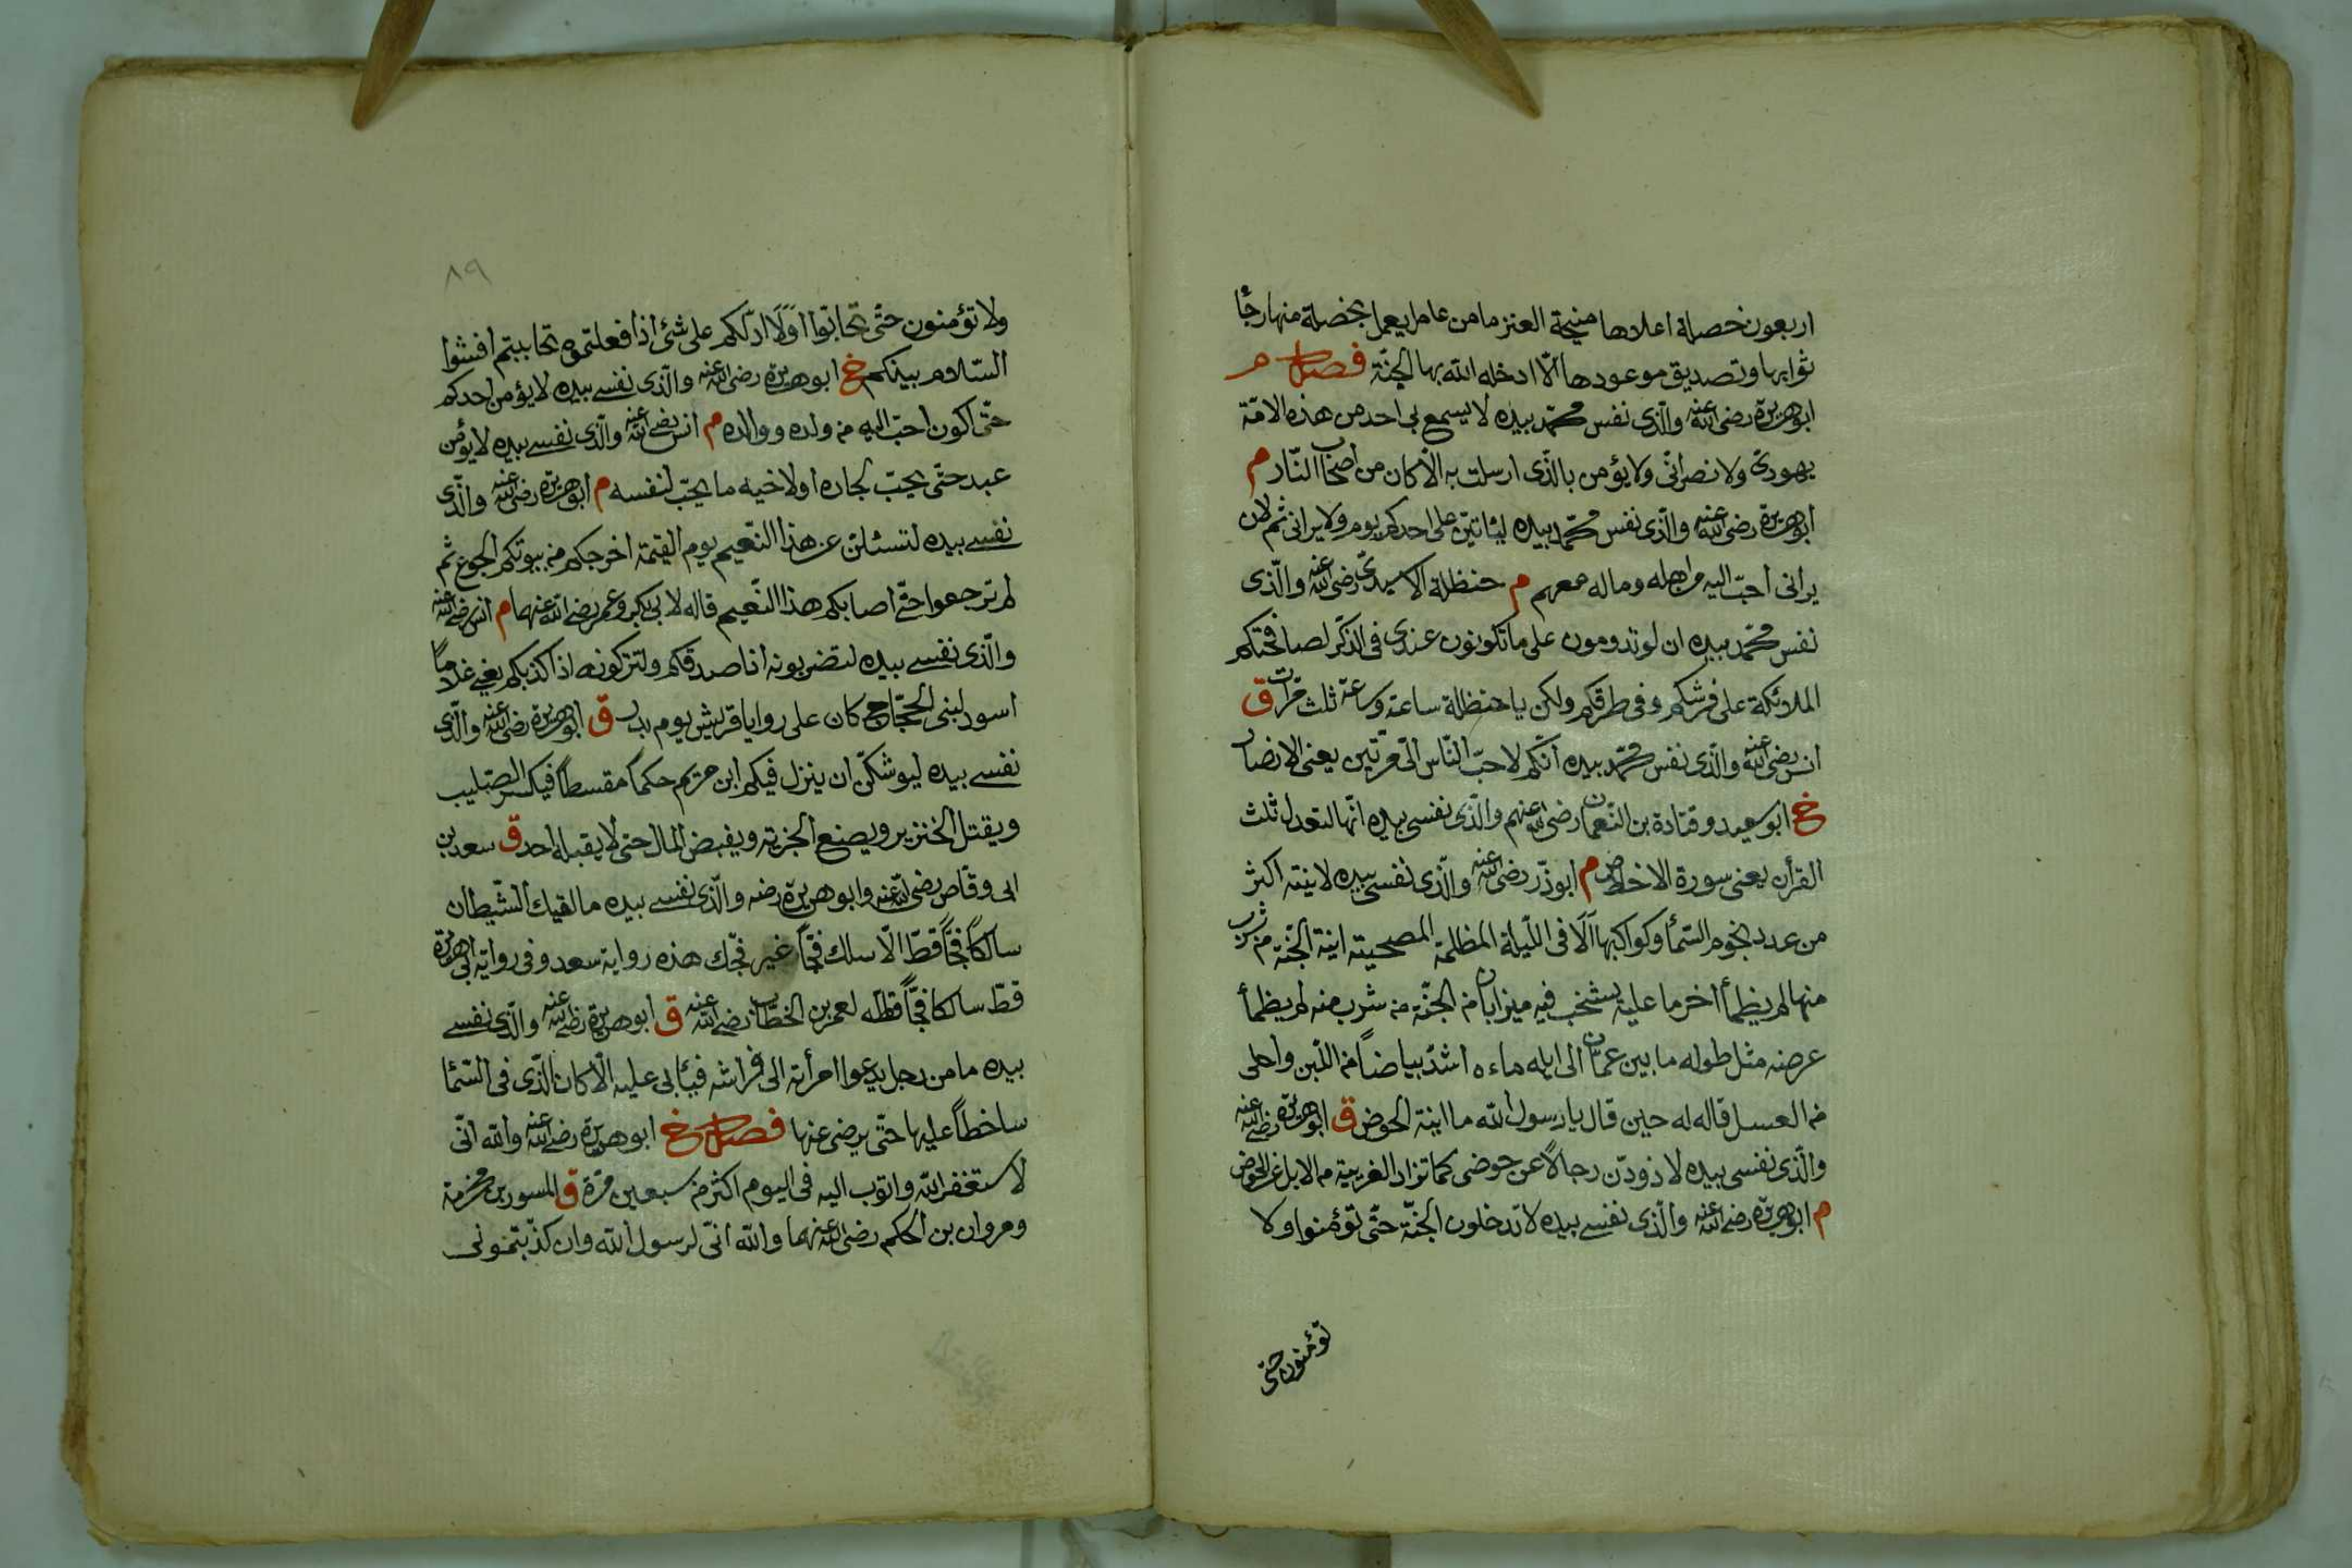 اربعون خصلة اعلاها منيحة العنز ما من عامل يعمل بخصلة منها رجا
ثوابها وتصديق موعودها الّا ادخله الله بها الجنّة فصل م
ابوهريرة رضى الله عنه والّذى نفس محمّد بيده لا يسمع بى احد من هذه الامّة
يهودىّ ولا نصرانّى ولا يؤمن بالّذى ارسلت به الّا كان من اصحاب النّار م
ابوهريرة رضى الله عنه والّذى نفس محمّد بيده ليأتينّ على احدكم يوم ولا يرانى ثم لان
يرانى احبّ اليه من اهله وماله معهم م حنظلة الاسيدىّ رضى الله عنه والّذى
نفس محمّد بيده ان لو تدومون على ما تكونون عندى فى الذّكر لصافحتكم
الملائكة على فرشكم وفى طرقكم ولكن يا حنظلة ساعة وساعة ثلث مرّات ق
انس رضى الله عنه والّذى نفس محمّد بيده انّكم لاحبّ النّاس الىّ مرّتين يعنى الانصار
خ ابو سعيد وقتادة بن النّعمان رضى الله عنهم والّذى نفسى بيده انّها لتعدل ثلث
القرأن يعنى سورة الاخلاص م ابوذرّ رضى الله عنه والّذى نفسى بيده لانيته اكثر
من عدد نجوم السّمأ وكواكبها ألا فى اللّيلة المظلمة المصحية انية الجنّة من شرب
منها لم يظمأ اخر ما عليه يشخب فيه ميزابان من الجنّة من شرب منه لم يظمأ
عرضه مثل طوله ما بين عمّان الى ايله ماءه اشدّ بياضاً من اللّبن واحلى
من العسل قاله له حين قال يا رسول الله ما انية الحوض ق ابوهريرة رضى الله عنه
والّذى نفسى بيده لاذودنّ رجالاً عن حوضى كما تزاد الغريبة من الابل عن الحوض
م ابوهريرة رضى الله عنه والّذى نفسى بيده لا تدخلون الجنّة حتّى تؤمنوا ولا
تؤمنون حتى
٨٩
ولا تؤمنون حتّى تحابّوا اوَلَا ادلّكم على شئ اذا فعلتموه تحاببتم افشوا
السّلام بينكم خ ابوهريرة رضى الله عنه والّذى نفسى بيده لا يؤمن احدكم
حتّى اكون احبّ اليه من ولده ووالده م انس رضى الله عنه والّذى نفسى بيده لا يؤمن
عبد حتّى يحبّ لجاره او لاخيه ما يحبّ لنفسه م ابوهريرة رضى الله عنه والّذى
نفسى بيده لتسئلنّ عن هذا النّعيم يوم القيمة اخرجكم من بيوتكم الجوع ثم
لم ترجعوا حتّى اصابكم هذا النّعيم قاله لابى بكر وعمر رضى الله عنهما م انس رضى الله عنه
والّذى نفسى بيده لتضربونه اذا صدقكم ولتتركونه اذا كذبكم يعنى غلاماً
اسود لبنى الحجّاج كان على روايا قريش يوم بدر ق ابوهريرة رضى الله عنه والّذى
نفسى بيده ليوشكنّ ان ينزل فيكم ابن مريم حكماً مقسطاً فيكسر الصّليب
ويقتل الخنزير ويضع الجزية ويفيض المال حتى لا يقبله احد ق سعد بن
ابى وقاص رضى الله عنه وابوهريرة رضه والّذى نفسى بيده ما لقيك الشّيطان
سالكاً فجّاً قطّ الّا سلك فجّاً غير فجّك هذه رواية سعد وفى رواية ابى هريرة
قطّ سالكا فجّاً قاله لعمر بن الخطّاب رضى الله عنه ق ابوهريرة رضى الله عنه والّذى نفسى
بيده ما من رجل يدعوا امرأته الى فراشه فيأبى عليه الّا كان الّذى فى السّمأ
ساخطاً عليها حتّى يرضى عنها فصل خ ابوهريرة رضى الله عنه والله انّى
لاستغفر الله واتوب اليه فى اليوم اكثر من سبعين مرّة ق المسور بن مخرمة
ومروان بن الحكم رضى الله عنهما والله انّى لرسول الله وان كذّبتمونى